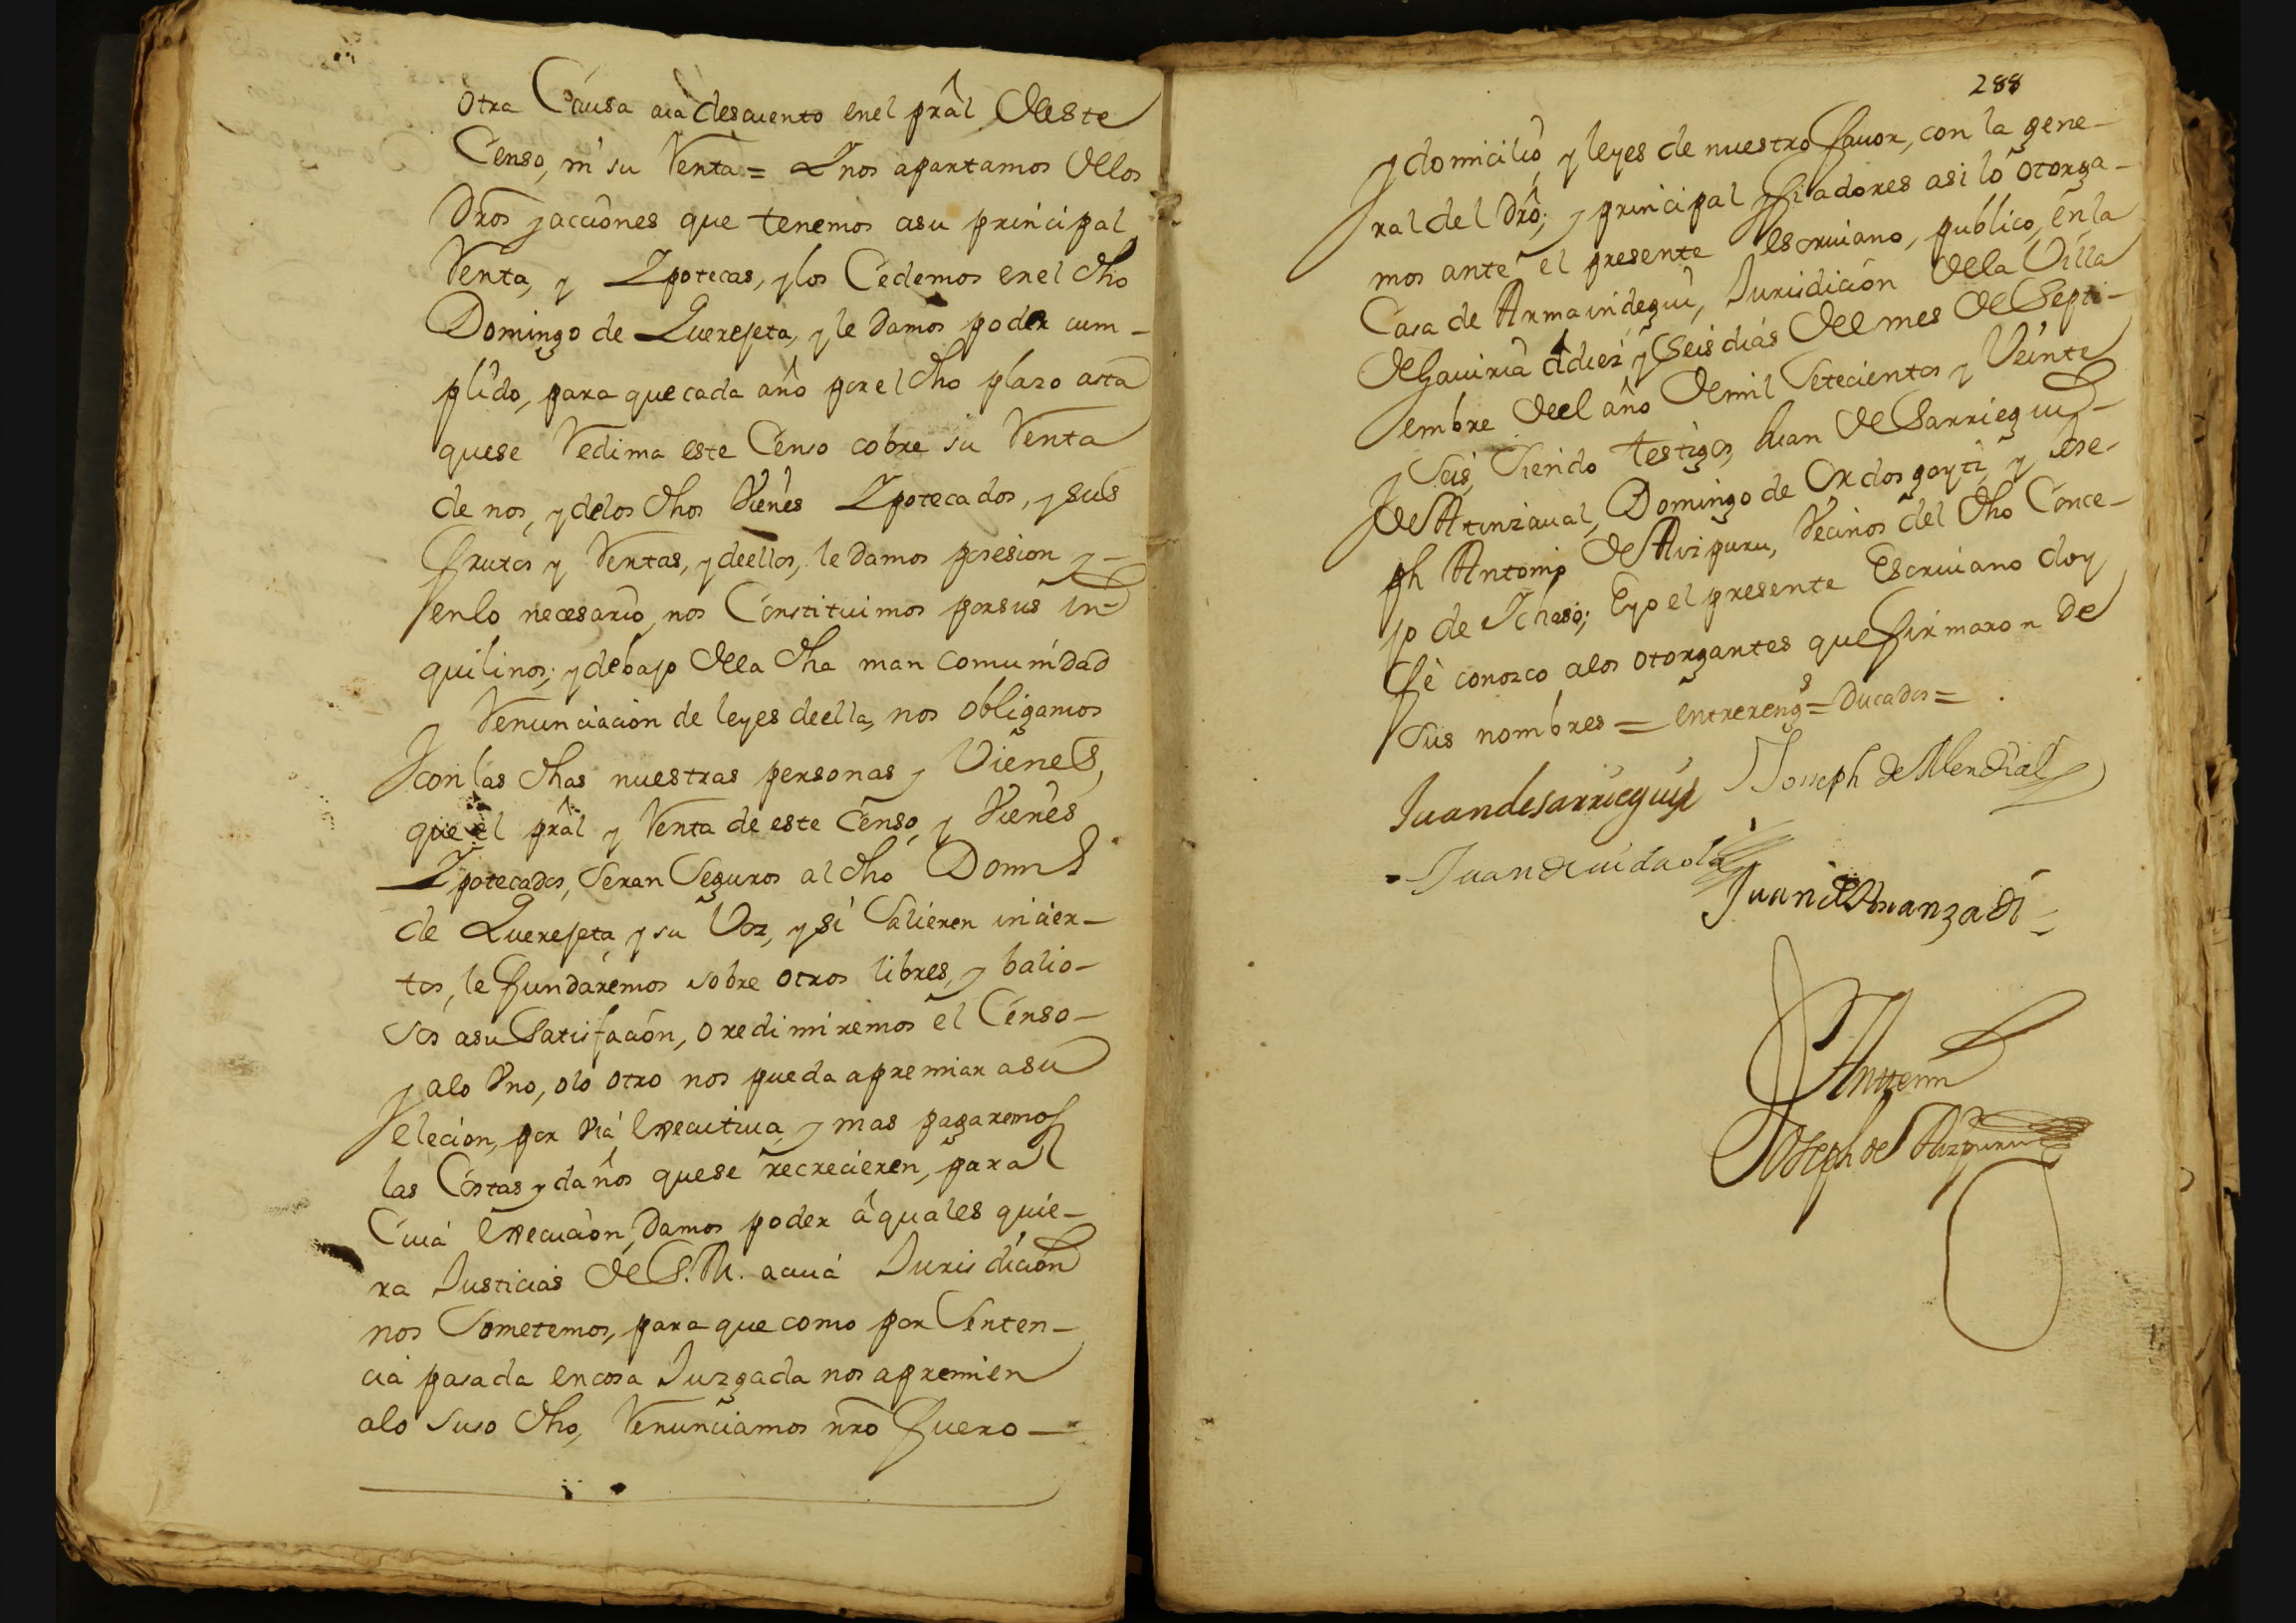 otra Causa aia descuento enel prâl deeste
Censo, ni su Renta = Y nos apartamos dellos
Drõs y acciones que tenemos asu principal
Renta, y Ypotecas, y los Cedemos enel dho
Domingo de Querejeta, y le damos poder cum-
plido, para que cada año por el dho plazo asta
quese Redima este Censo cobre su Renta
de nos, y delos dhos Vienes Ypotecados, y sus
frutos y Rentas, y deellos, le damos posesion y-
enlo necesario, nos Constituimos porsus in-
quilinos; y debajo della dha man comunidad
y Renunciacion de leyes deella, nos obligamos
con las dhas nuestras personas y Vienes,
que el prâl y Renta de este Censo, y Vienes
Ypotecados, seran Seguros al dho Domº
de Querejeta y su Voz, y si Salieren incier-
tos, le fundaremos sobre otros libres, y balio-
sos asu Satisfacion, o redimiremos el Censo-
y alo Uno, olo otro nos pueda apremiar asu
elecion, por Via executiua, y mas pagaremos
las Costas y daños quese recrecieren, para
Cuia execucion, Damos poder â quales quie-
ra Justicias de S.M. a cuia Jurisdicion
nos Sometemos, para que como por Senten-
cia pasada encosa Juzgada nos apremien
alo suso dho, Renunciamos nrõ fuero-
288
y domicilio, y leyes de nuestro fauor, con la gene-
ral del drô; y principal y fiadores asi lo otorga-
mos ante el presente escriuano, publico, en la
Casa de Armaindegui, Jurisdicion dela Villa
de Gauiria a diez y seis dias del mes de Septi-
embre deel año de mil Setecientos y Veinte
y Seis, Siendo testigos, Juan de Sarriegui-
de Atinzaual, Domingo de Ordosgoyti, y Jose-
ph Antonio de Aizpuru, Vecinos del dho Conce-
jo de Ichaso; E yo el presente Escriuano doy
fè conozco alos otorgantes que firmaron de
sus nombres = entrerengˢ = Ducados =
Juan de sarriegui Joseph de Mendial
Juan de
Juan de Vnanzadi
Ante mi
Joseph de Aizpuru